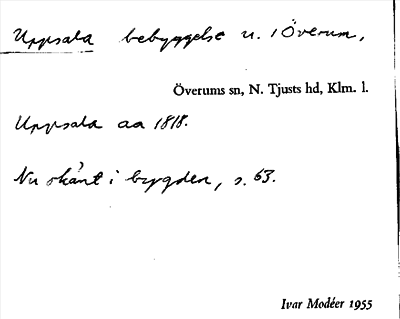 Uppsala bebyggelse u. i Överum,
Överums sn, N. Tjusts hd, Klm. l.
Uppsala aa 1818.
Nu skänt i bygden, s. 63.
Ivar Modéer 1955